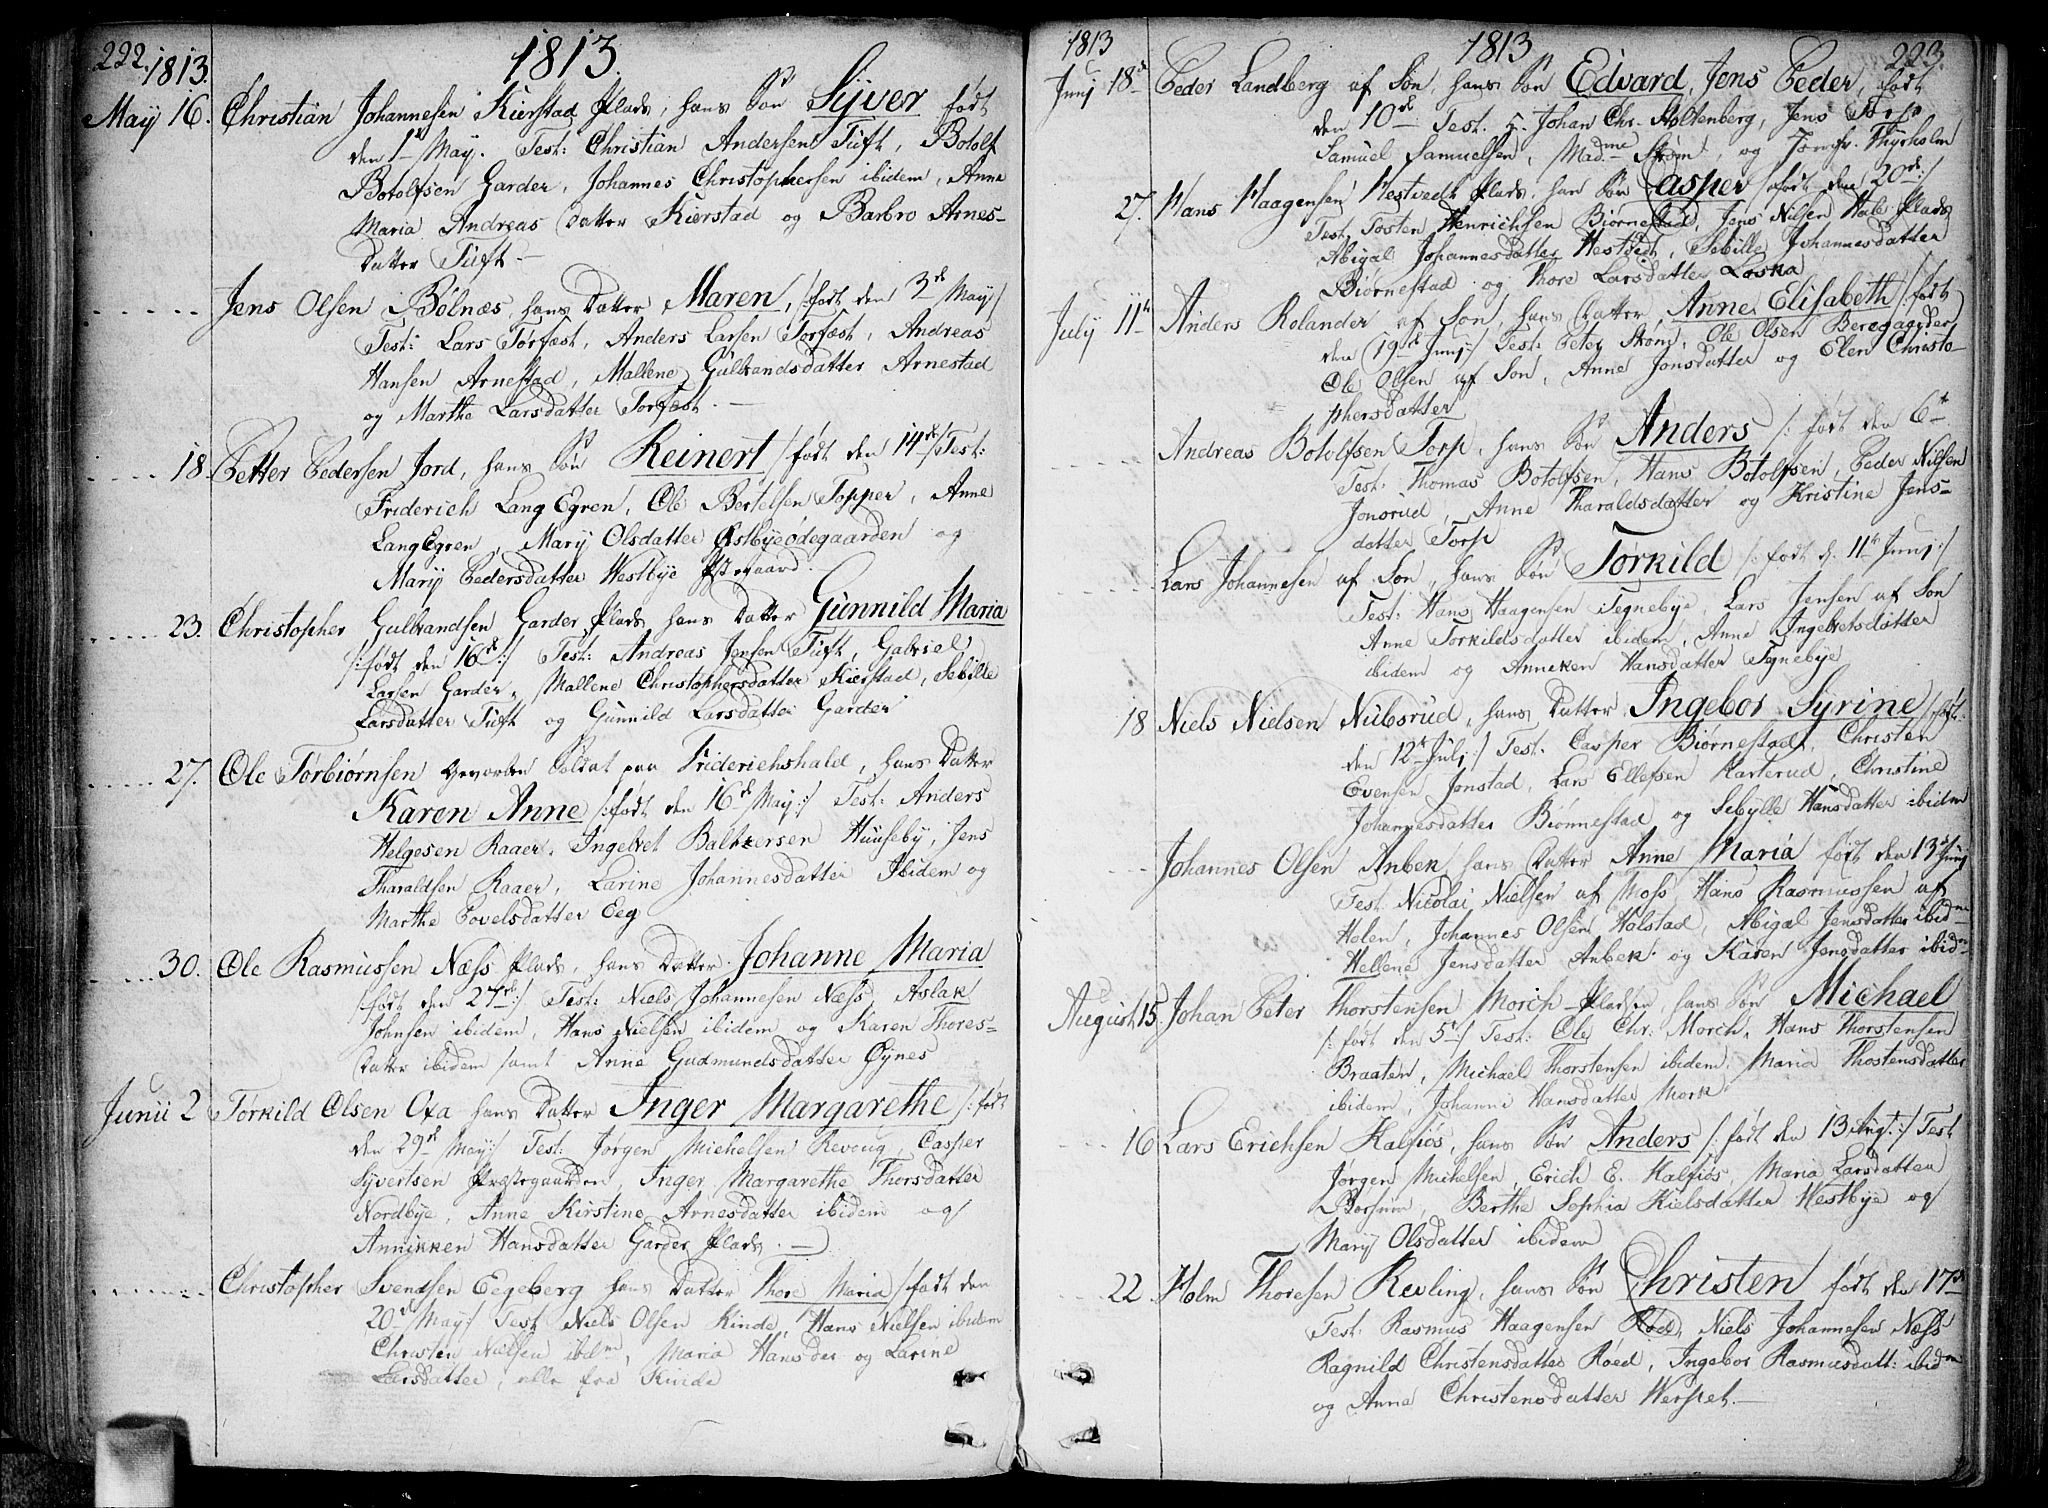 222. 1813. 1813.
May 16. Christian Johannesen Kierstad Plads, hans Søn Syver født
den 1ste May. Test: Christian Andersen Tuft, Botolf
Botolfsen Garder, Johannes Christophersen ibidem, Anne
Maria Andreas Datter Kierstad og Barbro Arnes-
Datter Tuft
Jens Olsen Bølnæs, hans Datter Maren, /:født den 3de May/
Test: Lars Torfæst, Anders Larsen Torfæst, Andreas
Hansen Arnestad, Mallene Gulbrandsdatter Arnestad
og Marthe Larsdatter Torfæst.
18. Petter Pedersen Jord, hans Søn Reinert /født den 14de/ Test:
Friderich Lang Egren, Ole Bertelsen Topper, Anne
Lang Egren, Mary Olsdatter Østbyeødegaarden og
Mary Pedersdatter Westbye Pstegaard.
23. Christopher Gulbrandsen Garder Plads hans Datter Gunnild Maria
/:født den 16de:/ Test: Andreas Jensen Tuft, Gabriel
Larsen Garder, Mallene Christophersdatter Kierstad, Sebille
Larsdatter Tuft og Gunnild Larsdatter Garder
27. Ole Torbiørnsen Gevorben Soldat paa Friderichshald, hans Datter
Karen Anne /:født den 16de May:/ Test: Anders
Helgesen Raaer, Ingebret Baltzersen Huuseby, Jens
Tharaldsen Raaer, Larine Johannesdatter Ibidem og
Marthe Povelsdatter Eeg
30. Ole Rasmussen Næss Plads, hans Datter Johanne Maria
/født den 27de:/ Test: Niels Johannesen Næss, Aslak
Johnsen ibidem, Hans Nielsen ibidem og Karen Thores-
Datter ibidem samt Anne Gudmundsdatter Øynes
Junii 2 Torkild Olsen Oxa hans Datter Inger Margarethe /:født
den 29de May/ Test: Jørgen Michelsen Revoug, Casper
Syvertsen Præstegaarden, Inger Margarethe Thorsdatter
Nordbye, Anne Kirstine Arnesdatter ibidem og
Annikken Hansdatter Garder Plads.
Christopher Svendsen Egeberg hans Datter Thore Maria /født den
20de May/ Test Niels Olsen Kinde, Hans Nielsen ibidem
Christen Nielsen ibidm, Maria Hansder og Larine
Larsdatter, alle fra Kinde
1813 1813 223.
Junj 18de Peder Landberg af Son, hans Søn Edvard Jens Peder, født
den 10de Test. H. Johan Chr. Holtenberg, Jens Torp
Samuel Samuelsen, Madme Strøm, og Jomfr. Thyrholm
27. Hans Haagensen Hestvedt Plads, hans Søn Casper /født den 20de:/
Test. Tosten Henrichsen Biørnestad, Jens Nilsen Hale Plads
Abigal Johannesdatter Hestvedt, Sebille Johannesdatter
Biørnestad og Thore Larsdatter Loska
July 11te Anders Rolander af Son, hans Datter Anne Elisabeth /født
den 19de Junj:/ Test: Peter Strøm, Ole Olsen
Ole Olsen af Son, Anne Jonsdatter og Elen Christo-
phersdatter
Andreas Botolfsen Torp, hans Søn Anders /: født den 6te
Test: Thomas Botolfsen, Hans Botolfsen, Peder Nilsen
Jonsrud, Anne Tharaldsdatter og Kristine Jens-
datter Torp
Lars Johannesen af Son, hans Søn Torkild /:født d. 11te Junj:/
Test: Hans Haagensen Tegnebye, Lars Jensen af Son
Anne Torkildsdatter ibidem, Anne Ingebretsdatter
ibidem og Anneken Hansdatter Tegnebye
18 Niels Nielsen Nubsrud, hans Datter Ingebor Syrine /født:
den 12te Julj:/ Test. Casper Biørnestad, Christen
Evensen Jonstad, Lars Ellefsen Karterud, Christine
Johannesdatter Biønnestad og Sebylle Hansdatter ibidem
Johannes Olsen Anbek, hans Datter Anne Maria født den 13de Junj
Test. Nicolai Nielsen af Moss Hans Rasmussen af
Helen, Johannes Olsen Holstad, Abigal Jensdatter ibidme
Hellene Jensdatter Anbek og Karen Jensdatter ibidm
August 15. Johan Peter Thorstensen Morch-Pladsen, hans Søn Michael
/:født den 5te/ Test: Ole Chr. Morch, Hans Thorstensen
Braaten, Michael Thorstensen ibidem, Maria Thostensdatter
ibidem, Johanne Hansdatter Mork
16 Lars Erichsen Kalfiøs, hans Søn Anders /:født den 13 Aug:/ Test
Jørgen Michelsen, Erich E. Kalfiøs, Maria Larsdatter
Borsum, Berthe Sophia Kielsdatter Westbye og
Mary Olsdatter ibidem
22 Holm Thoresen Revling, hans Søn Christen født den 17de
Test: Rasmus Haagensen Rød, Niels Johannesen Næss
Ragnild Christensdatter Røed, Ingebor Rasmusdatt: ibidm
og Anne Christensdatter Werpet.